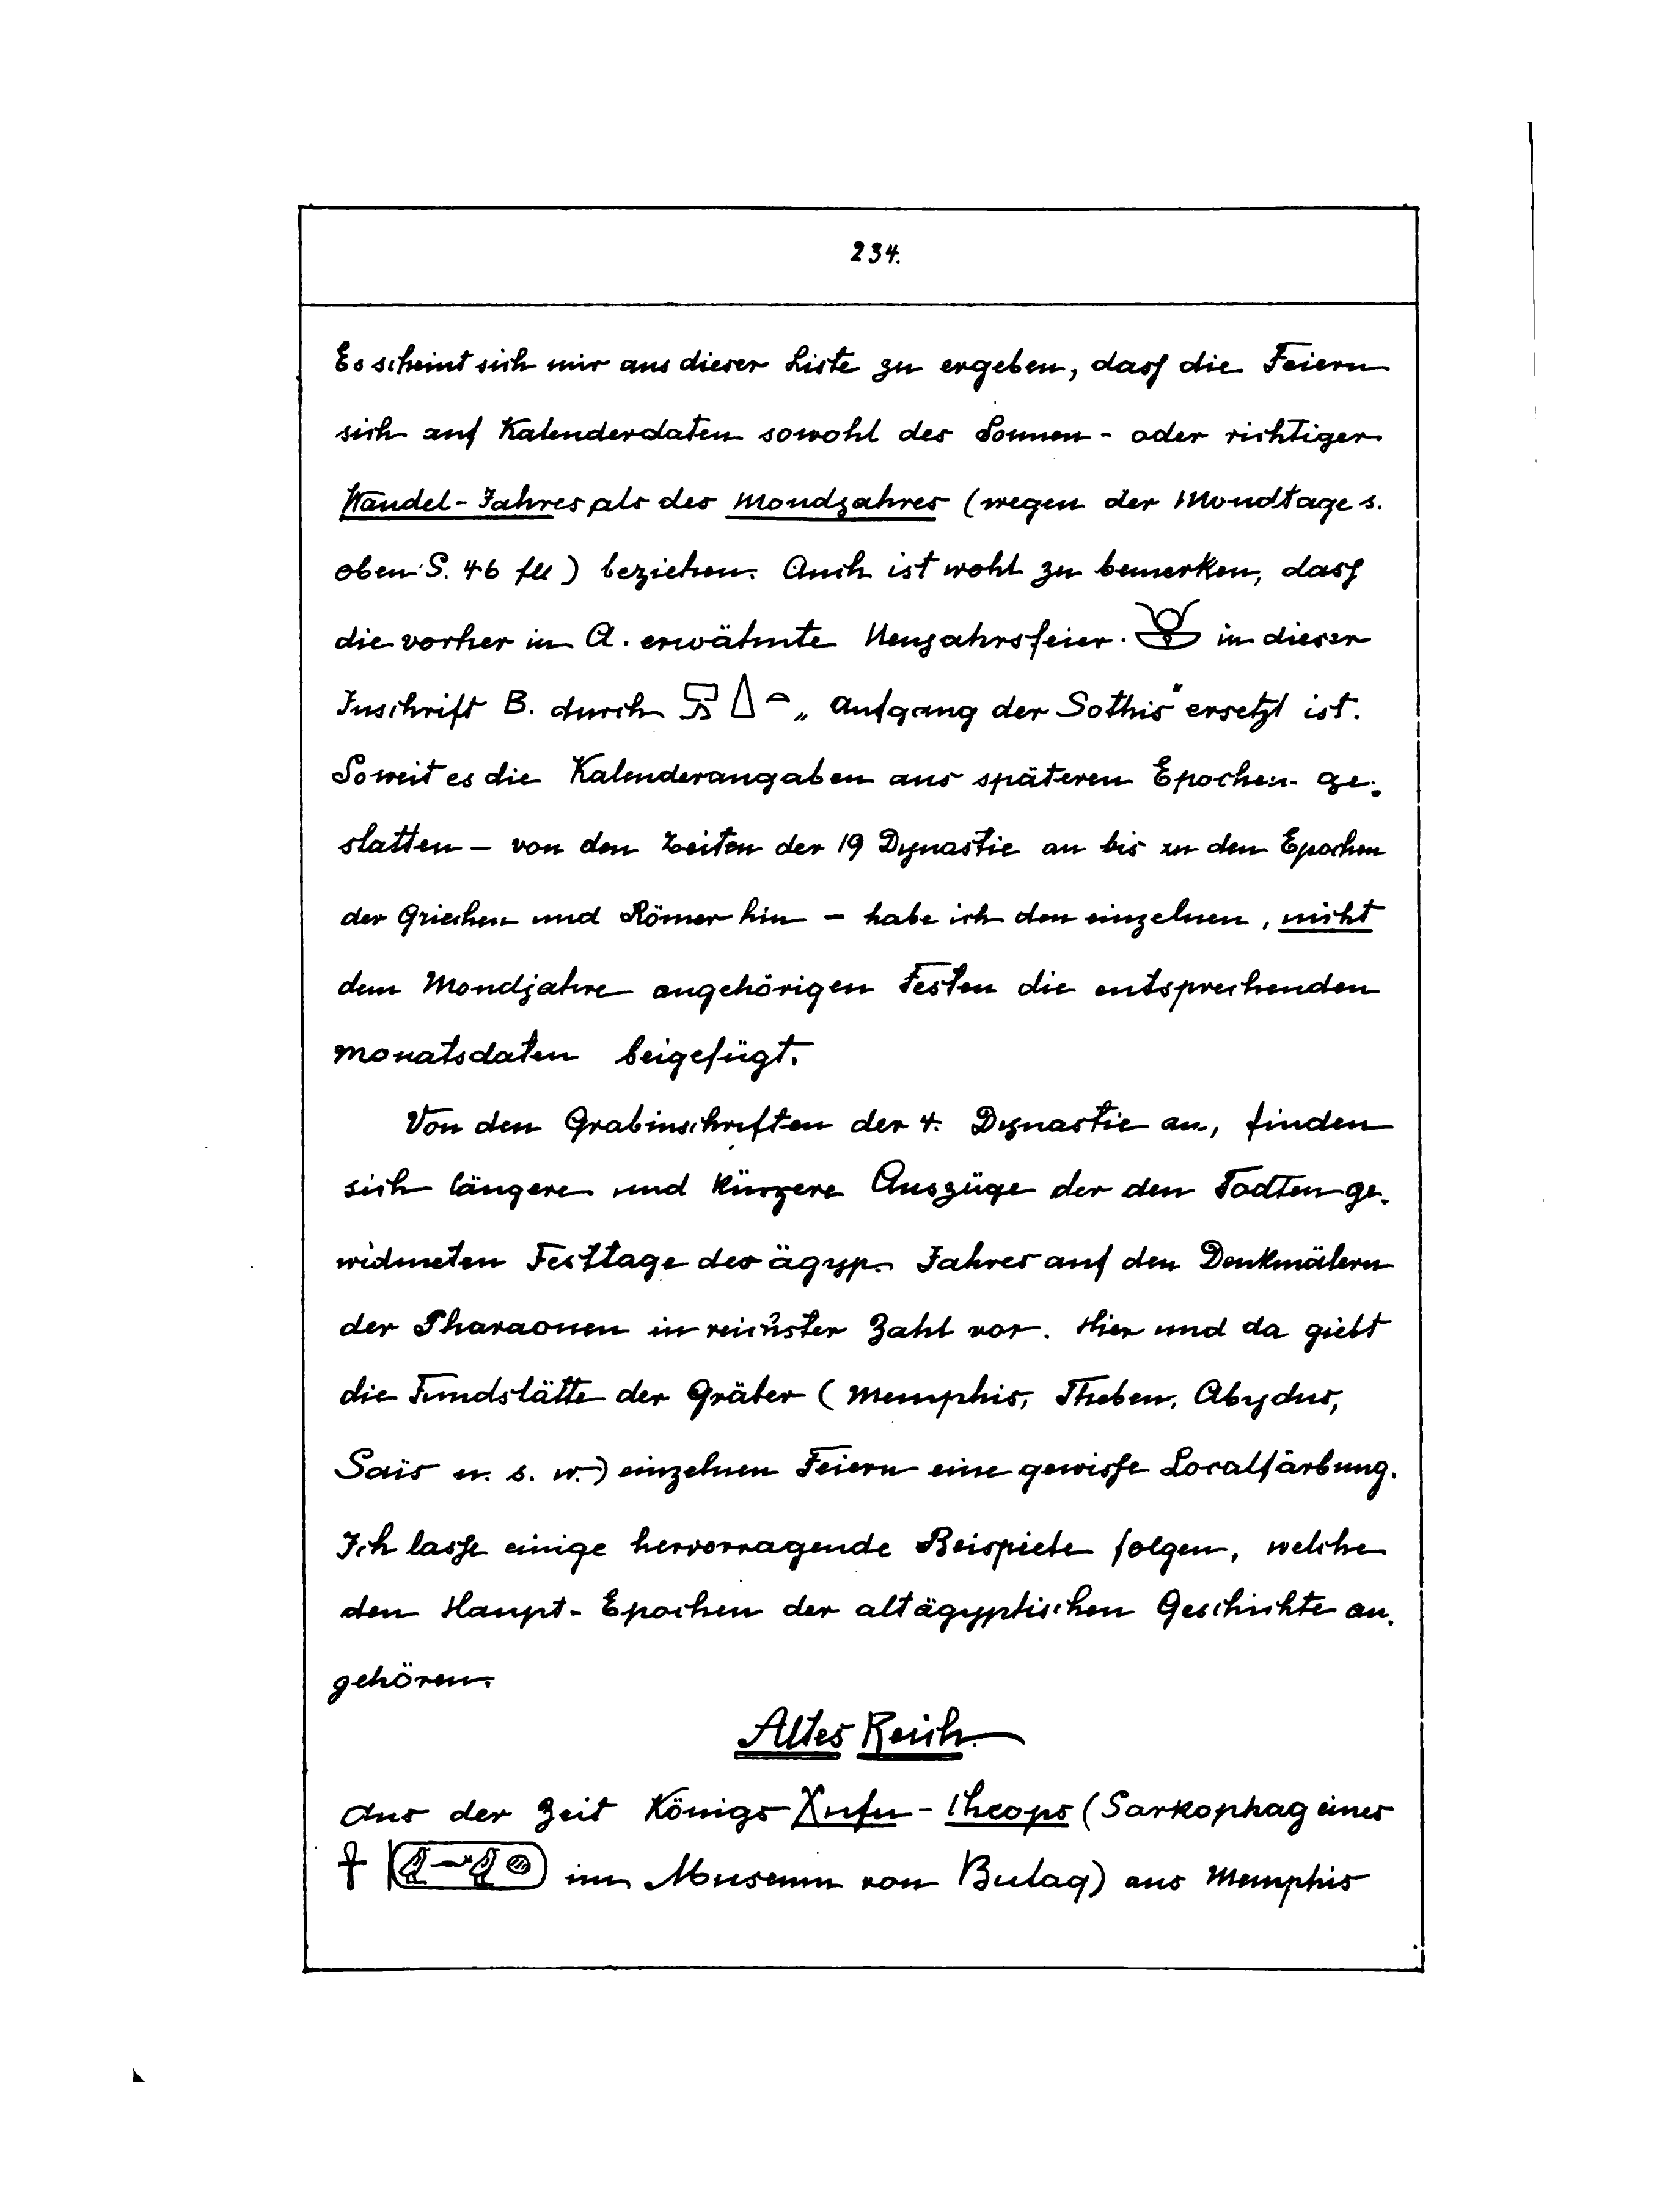 234.
Es scheint sich mir aus dieser Liste zu ergeben, dass die Feiern
sich auf Kalenderdaten sowohl des Sonnen- oder richtiger
Wandel-Jahres, als des Mondjahres (wegen der Mondtage s.
oben S. 46 fll) beziehen. Auch ist wohl zu bemerken, dass
die vorher in A. erwähnte Neujahrsfeier in dieser
Inschrift B. durch „Aufgang der Sothis" ersetzt ist.
Soweit es die Kalenderangaben aus späteren Epochen ge-
statten – von den Zeiten der 19 Dynastie an bis zu den Epochen
der Griechen und Römer hin – habe ich den einzelnen, nicht
dem Mondjahre angehörigen Festen die entsprechenden
Monatsdaten beigefügt.
Von den Grabinschriften der 4. Dynastie an, finden
sich längere und kürzere Auszüge der den Todten ge-
widmeten Festtage des ägyp. Jahres auf den Denkmälern
der Pharaonen in reichster Zahl vor. Hier und da giebt
die Fundstätte der Gräber (Memphis, Theben, Abydus,
Saïs u. s. w.) einzelnen Feiern eine gewisse Localfärbung.
Ich lasse einige hervorragende Beispiele folgen, welche
den Haupt-Epochen der altägyptischen Geschichte an-
gehören.
Altes Reich.
Aus der Zeit Königs Xufu-Cheops (Sarkophag eines
im Museum von Bulaq) aus Memphis